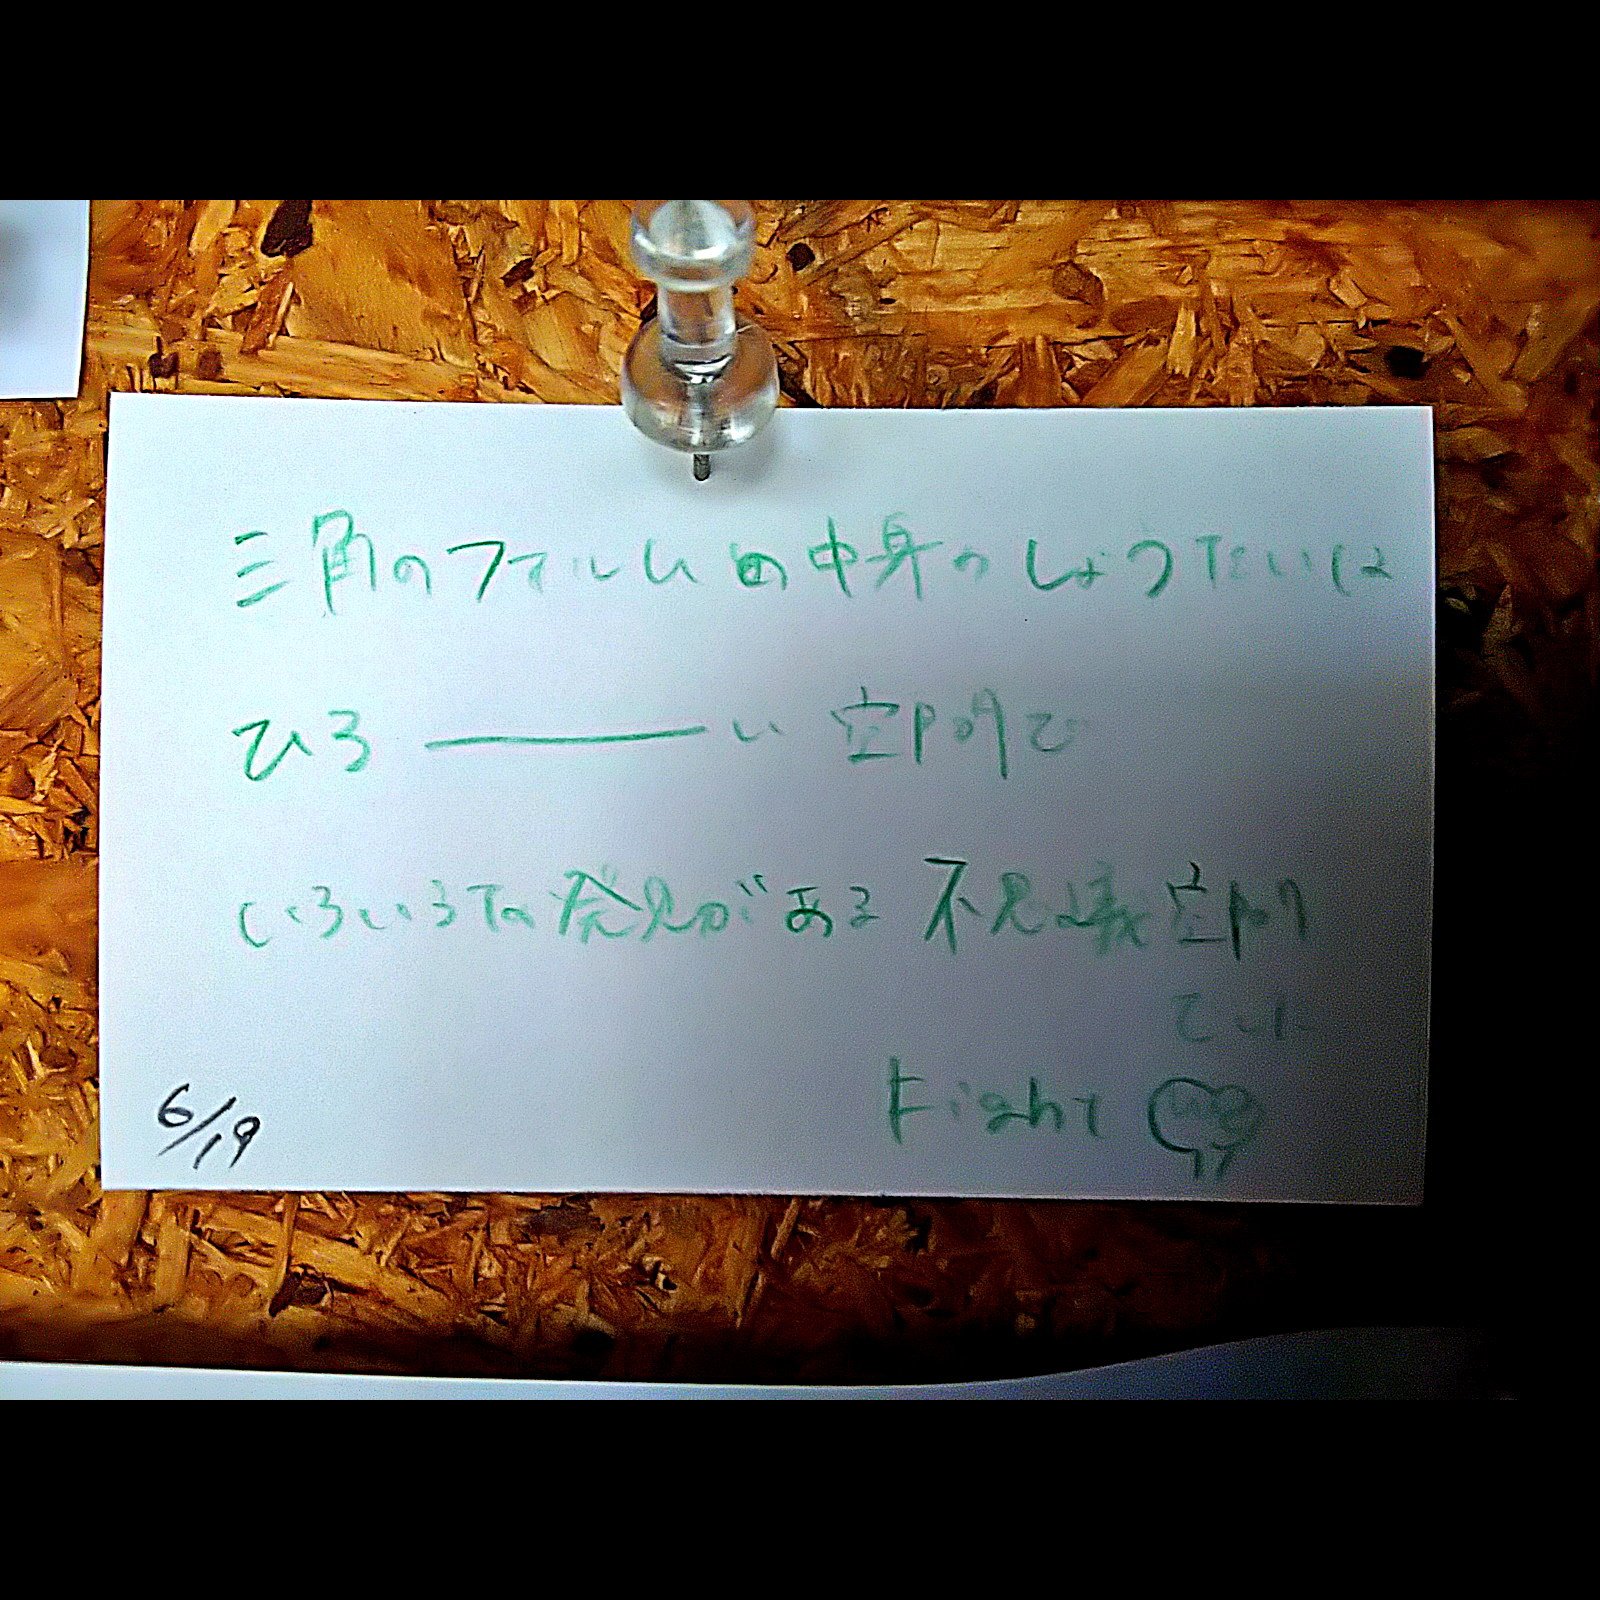 三角のフォルムの中身のしょうたいは
ひろ――い空間で
いろいろな発見がある不思議空間
でした
Fight
6/19